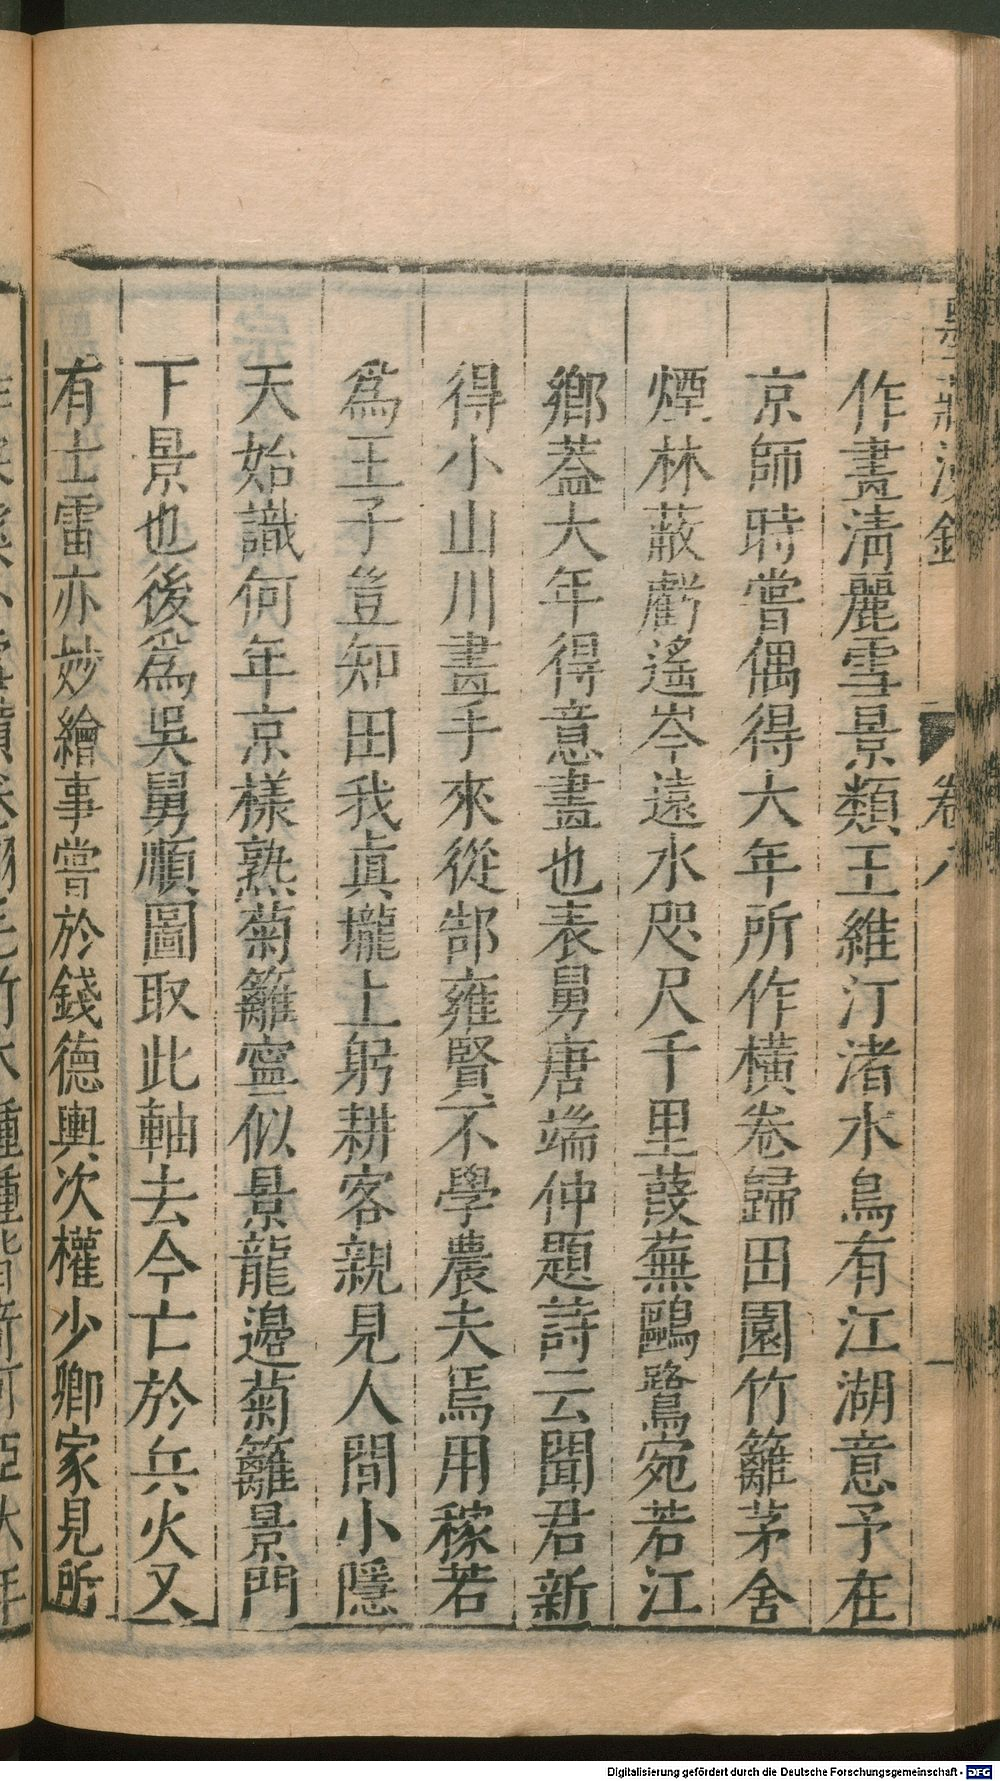 墨莊漫錄 卷
作畫清麗雪景類王維汀渚水鳥有江湖意予在
京師時嘗偶得大年所作橫卷歸田園竹籬茅舍
煙林蔽虧遙岑遠水咫尺千里葭蕪鷗鷺宛若江
鄉葢大年得意畫也表舅唐端仲題詩云聞君新
得小山川畫手來從郜雍賢不學農夫焉用稼若
為王子豈知田我真壠上躬耕客親見人間小隱
天始識何年京樣熟菊籬寧似景龍邊菊籬景門
下景也後為吳舅順圖取此軸去今亡於兵火又
有士雷亦妙繪事嘗於錢德輿次權少卿家見所
Digitalisierung gefördert durch die Deutsche Forschungsgemeinschaft - DFG